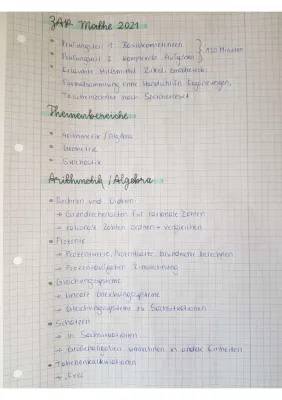 ZAP Mathe 2021
• Prüfungsteil 1: Basiskompetenzen
• Prüfungsteil 2: komplexe Aufgaben
120 Minuten
• Erlaubte Hilfsmittel: Zirkel, Geodreieck,
Formelsammlung ohne handschriftl. Ergänzungen,
Taschenrechner nach Speicherreset
Themenbereiche
• Arithmetik / Algebra
• Geometrie
• Stochastik
Arithmetik / Algebra
• Rechnen und Ordnen
→ Grundrechenarten für rationale Zahlen
→ rationale Zahlen ordnen + vergleichen
• Prozente
→ Prozentwerte, Prozentsatz, Grundwert berechnen
→ Zinsrechnung
• Gleichungssysteme
→ lineare Gleichungssysteme
→ Gleichungssysteme zu Sachsituationen
• Schätzen
→ in Sachsituationen
→ Größenangaben umrechnen in andere Einheiten
• Tabellenkalkulationen
→ Excel